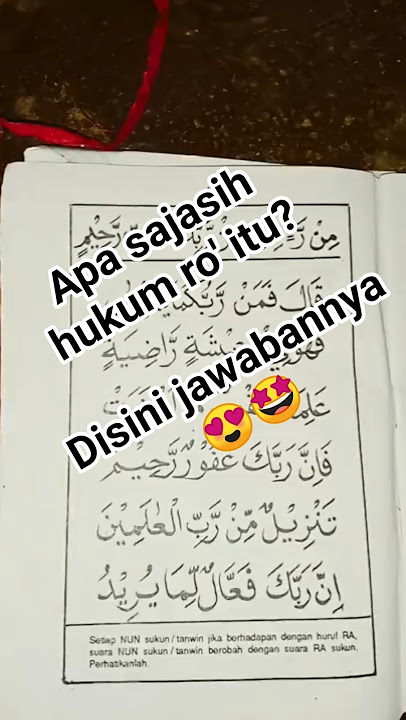 Apa sajasih
hukum ro' itu?
Disini jawabannya
مِنْ رَّحِيْمٍ
قَالَ فَمَنْ رَّبُّكُمَا
فَهُوَ رَّاضِيَةٍ
فَإِنَّ رَبَّكَ غَفُوْرٌ رَّحِيْمٌ
تَنْزِيْلٌ مِّنْ رَّبِّ الْعٰلَمِيْنَ
اِنَّ رَبَّكَ فَعَّالٌ لِّمَا يُرِيْدُ
Setiap NUN sukun/tanwin jika berhadapan dengan huruf RA,
suara NUN sukun/tanwin berobah dengan suara RA sukun.
Perhatikanlah.